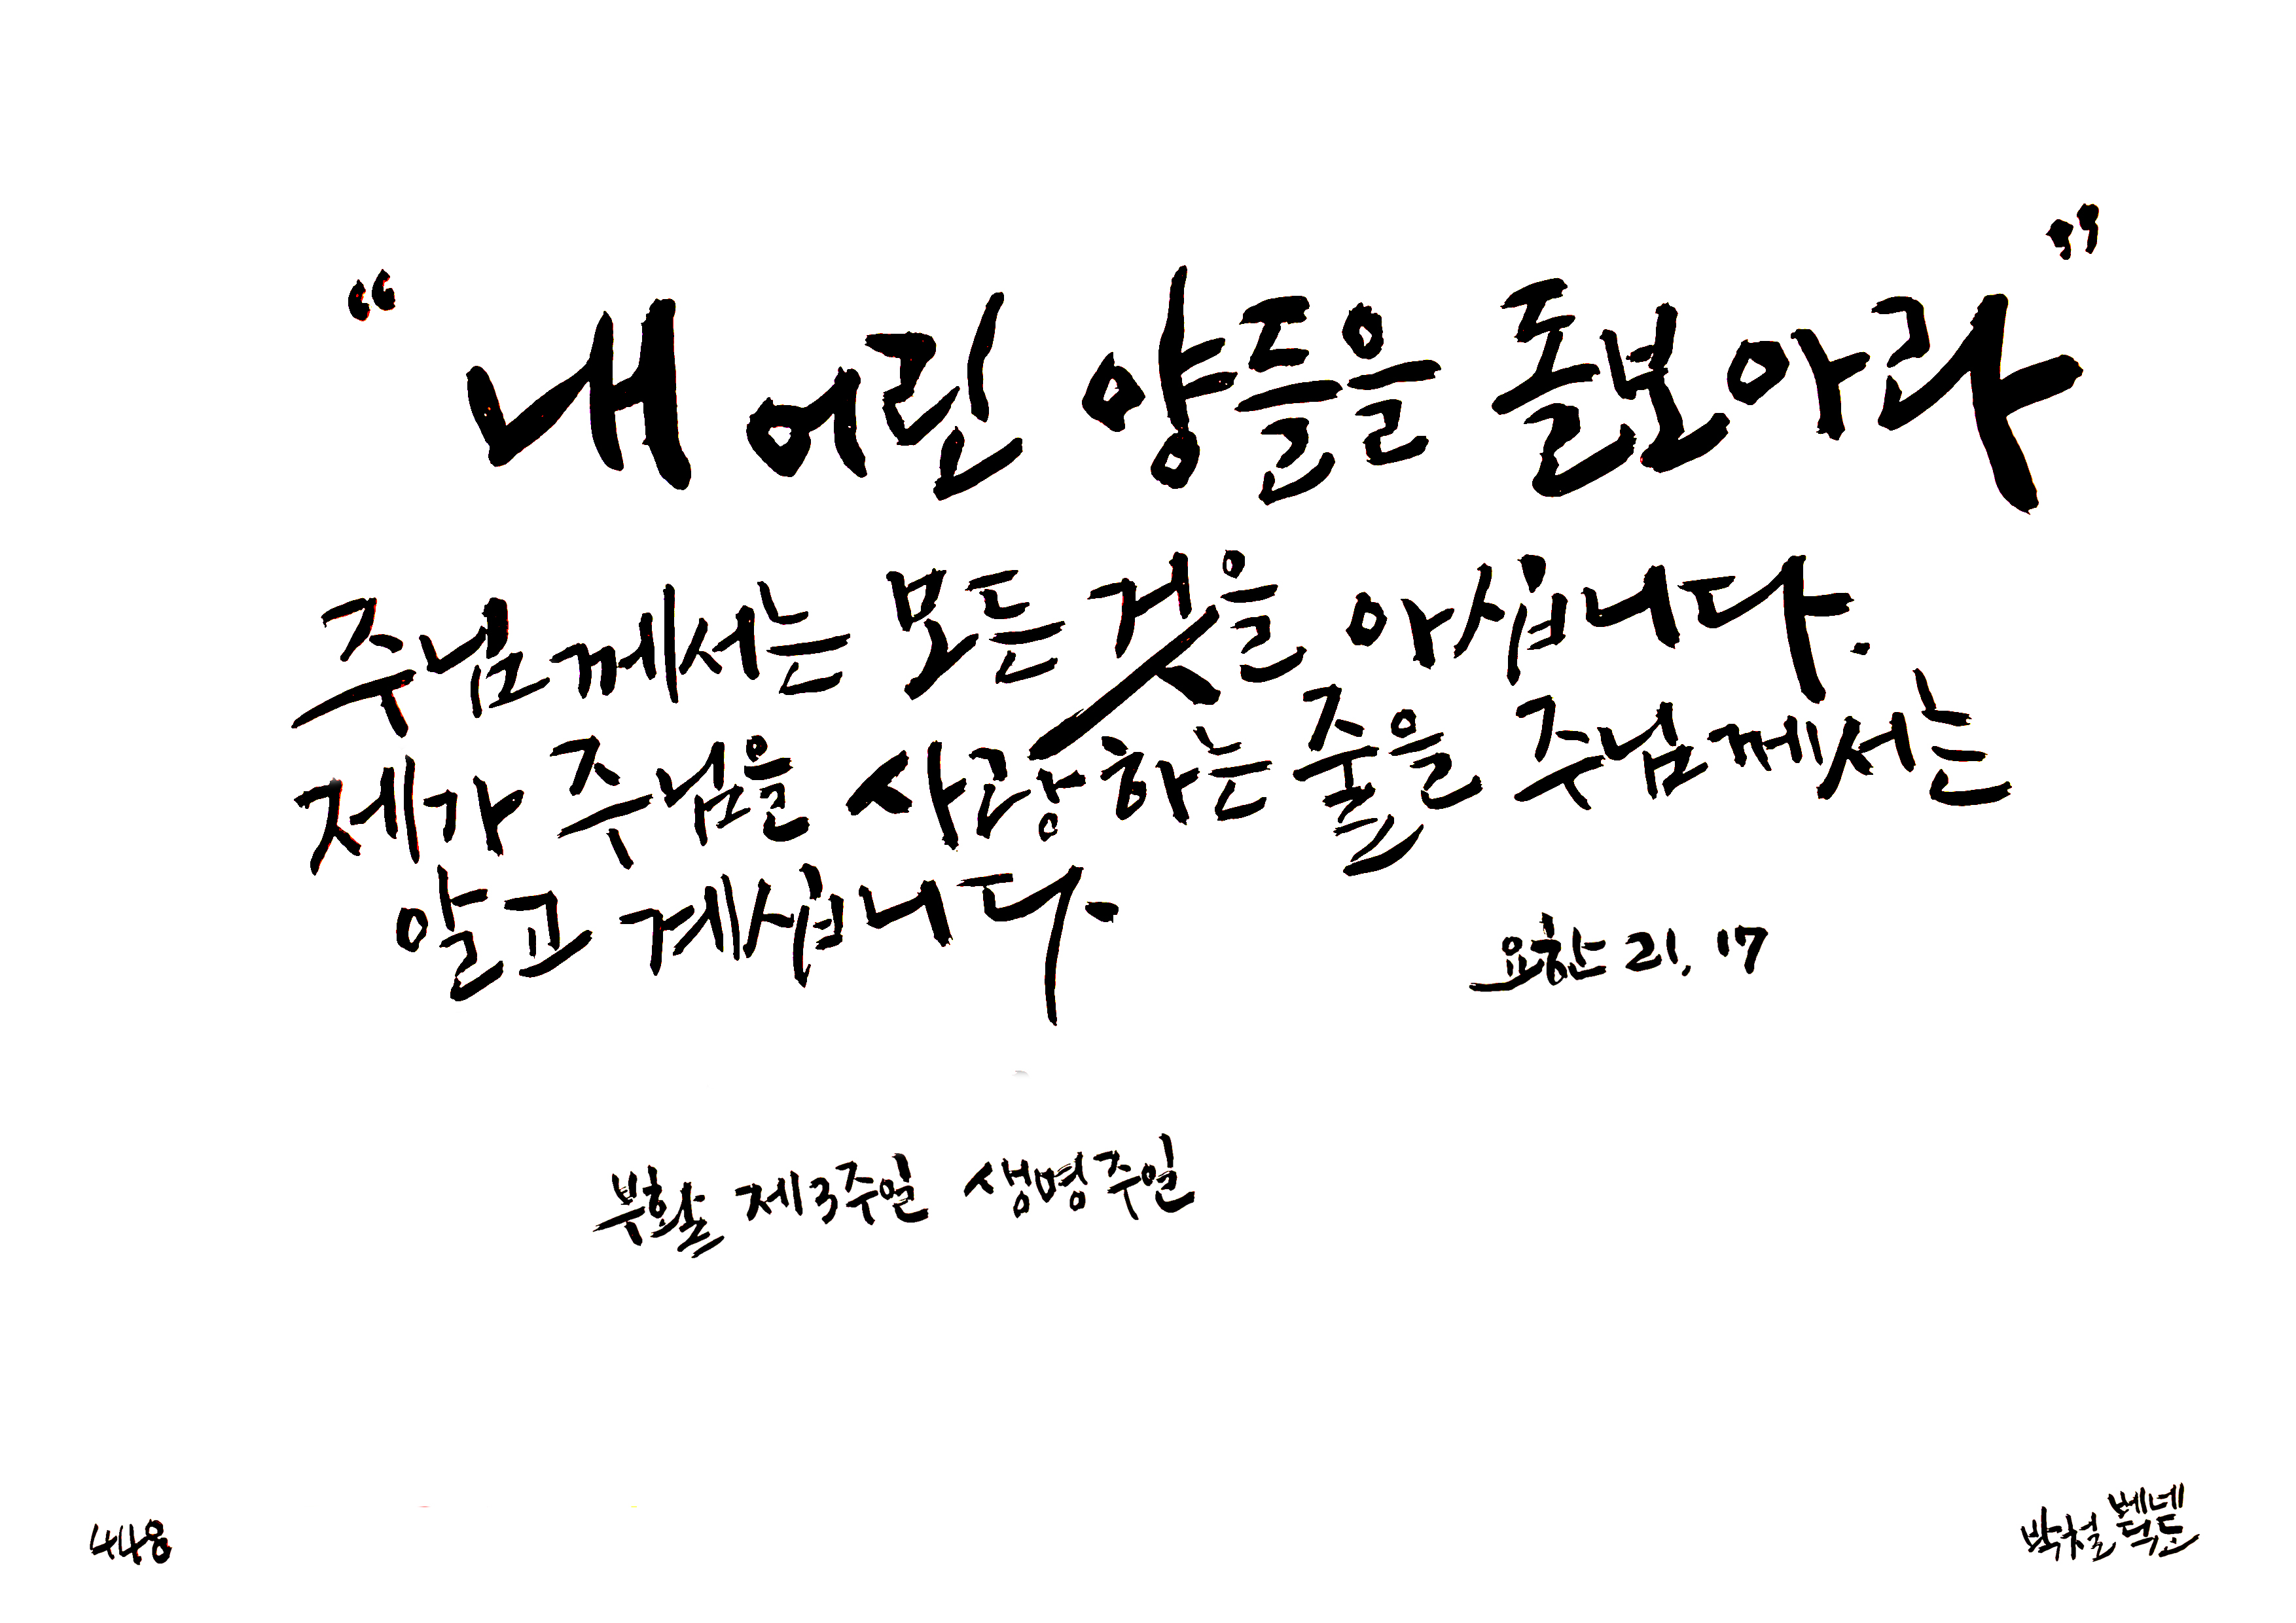 “내 어린 양들을 돌보아라”
주님께서는 모든 것을 아십니다.
제가 주님을 사랑하는 줄을 주님께서는
알고 계십니다.
요한 21, 17
부활 제3주일 생명주일
448
베네딕도